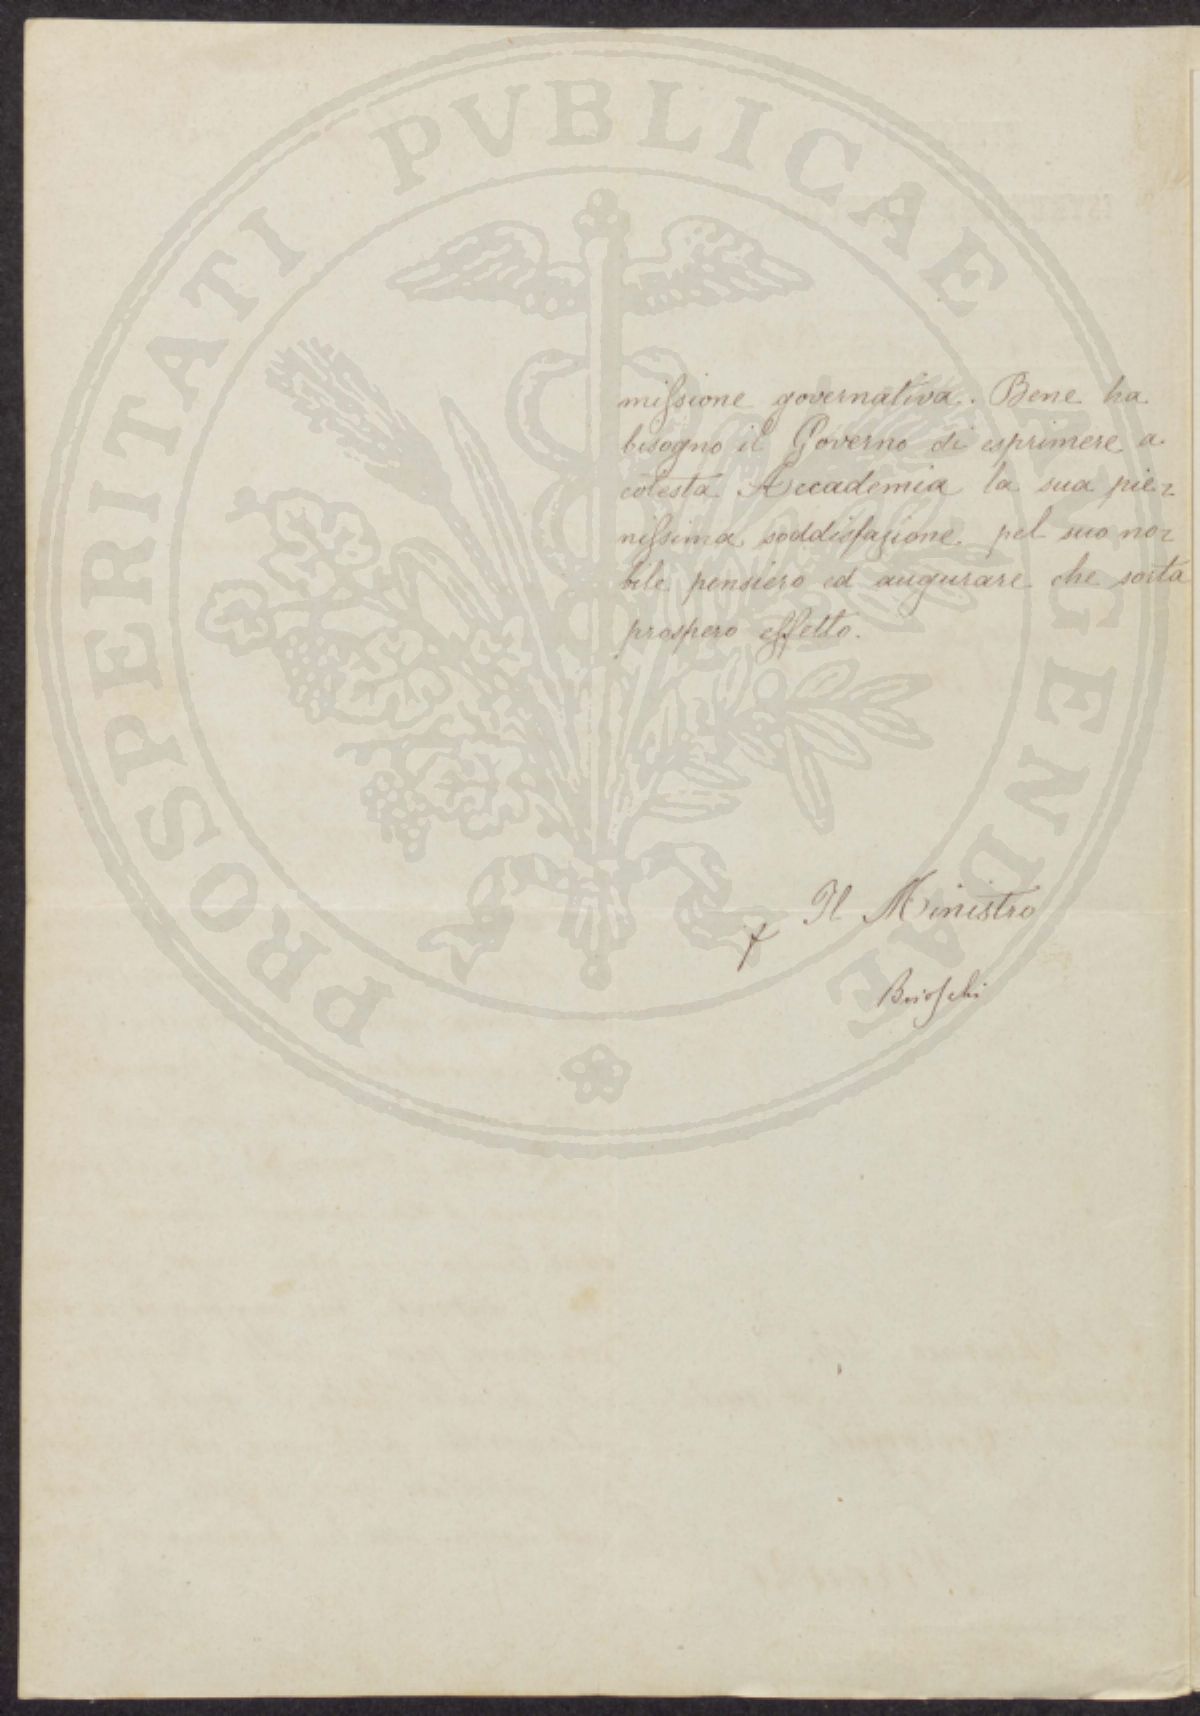 PROSPERITATI PVBLICAE AVGENDAE
missione governativa. Bene ha
bisogno il Governo di esprimere a
cotesta Accademia la sua pie-
nissima soddisfazione pel suo no-
bile pensiero ed augurare che sorta
prospero effetto.
Il Ministro
f
Brioschi